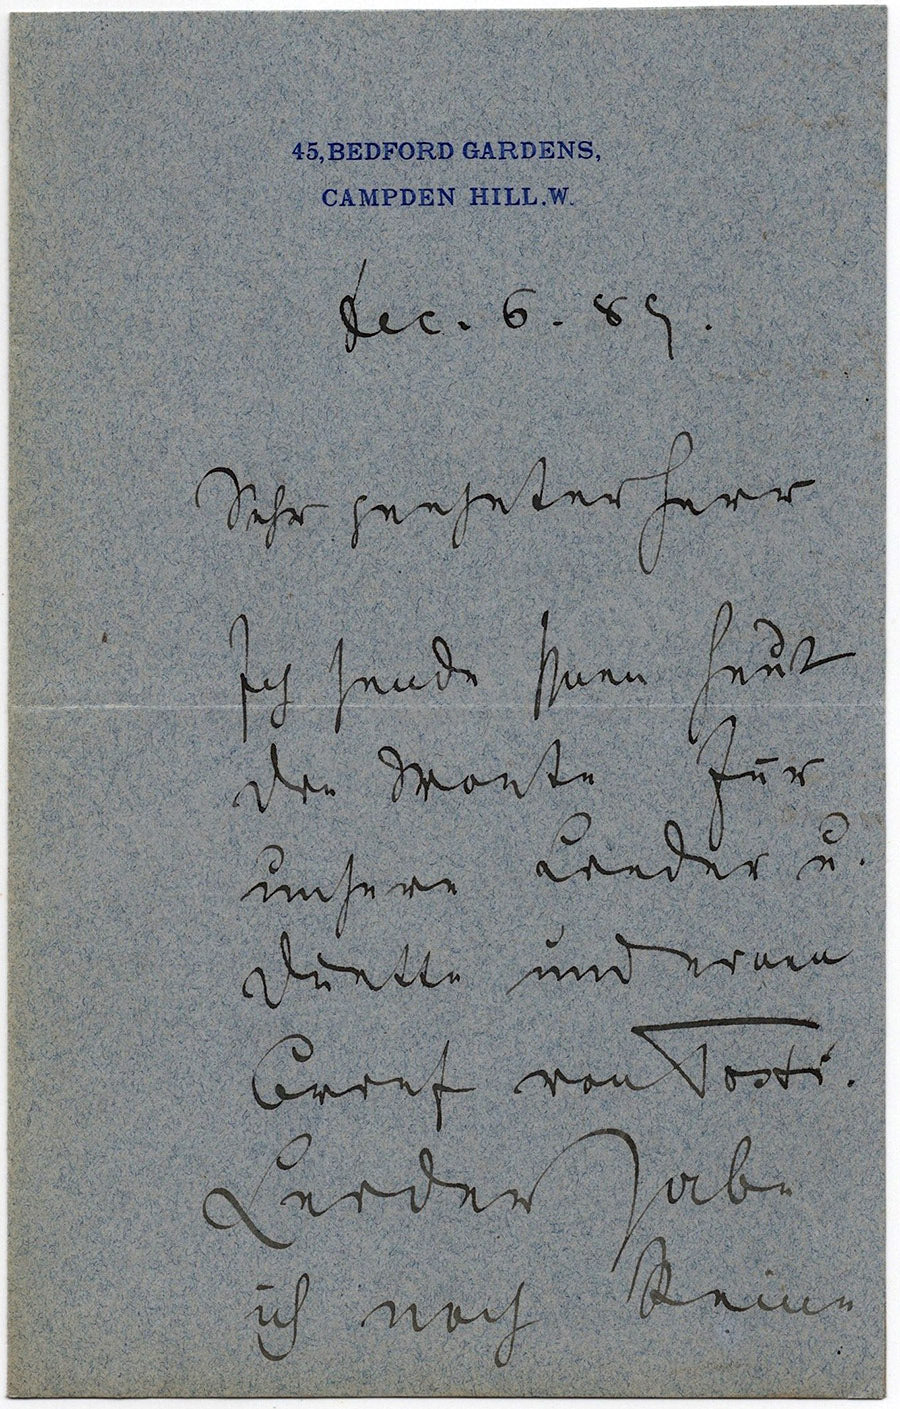 45, BEDFORD GARDENS,
CAMPDEN HILL. W.
Dec. 6. 89.
Sehr geehrter Herr
Ich sende Ihnen heut
die Worte für
unsere Lieder u.
Duette und einen
Brief von Tosti.
Leider habe
ich noch keine